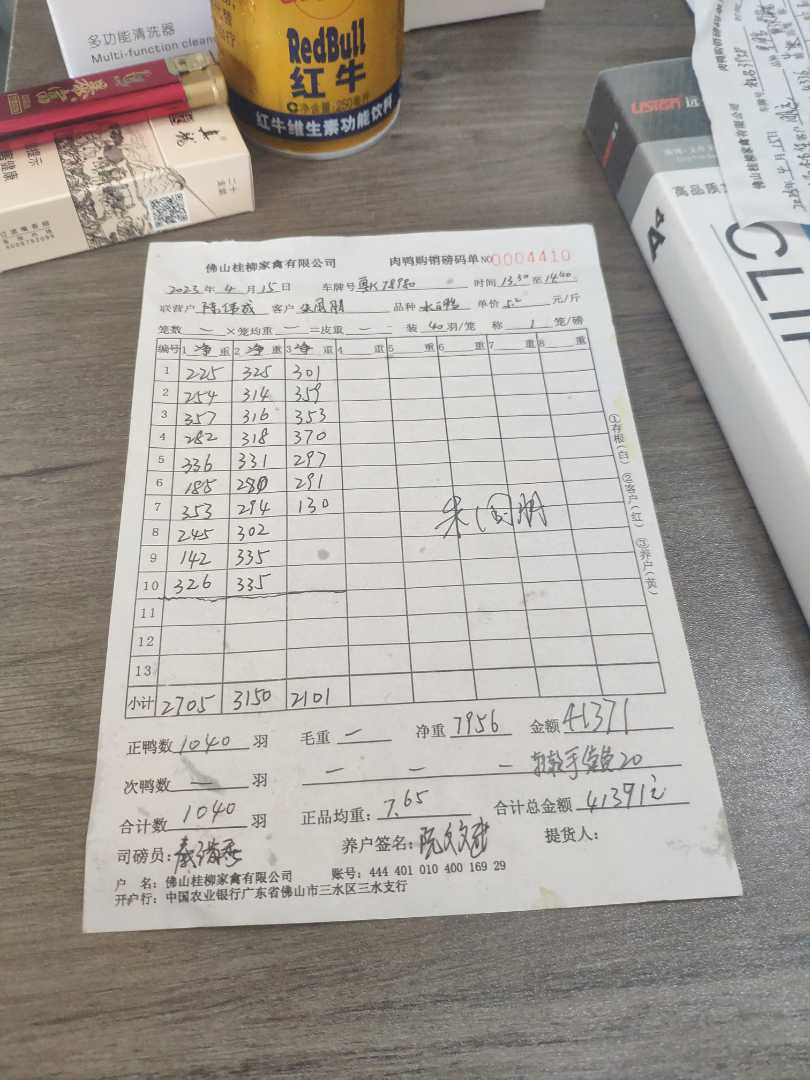 多功能清洗器
Multi-function clean
RedBull
红牛
净含量:250毫升
红牛维生素功能饮料
USIGN 远
高品
A4
CLIP
佛山桂柳家禽有限公司
佛山桂柳家禽有限公司 肉鸭购销磅码单 NO 0004410
2023 年 4 月 15 日 车牌号 粤K78980 时间 13.30 至 14.40
联营户 陈伟成 客户 朱国朋 品种 水鸭 单价 5.2 元/斤
笼数 — ×笼均重 — =皮重 — 装 40 羽/笼 称 1 笼/磅
编号 1 净 重 2 净 重 3 净 重 4 重 5 重 6 重 7 重 8 重
1 225 325 301
2 254 314 359
3 357 316 353
4 282 318 370
5 336 331 297
6 185 280 291
7 353 294 130
8 245 302
9 142 335
10 326 335
11
12
13
朱国朋
小计 2705 3150 2101
①存根(白) ②客户(红) ③养户(黄)
正鸭数 1040 羽 毛重 — 净重 7956 金额 41371
次鸭数 — 羽 — — — 手续费20
合计数 1040 羽 正品均重: 7.65 合计总金额 41391元
司磅员: 养户签名: 提货人:
户 名: 佛山桂柳家禽有限公司 账号: 444 401 010 400 169 29
开户行: 中国农业银行广东省佛山市三水区三水支行